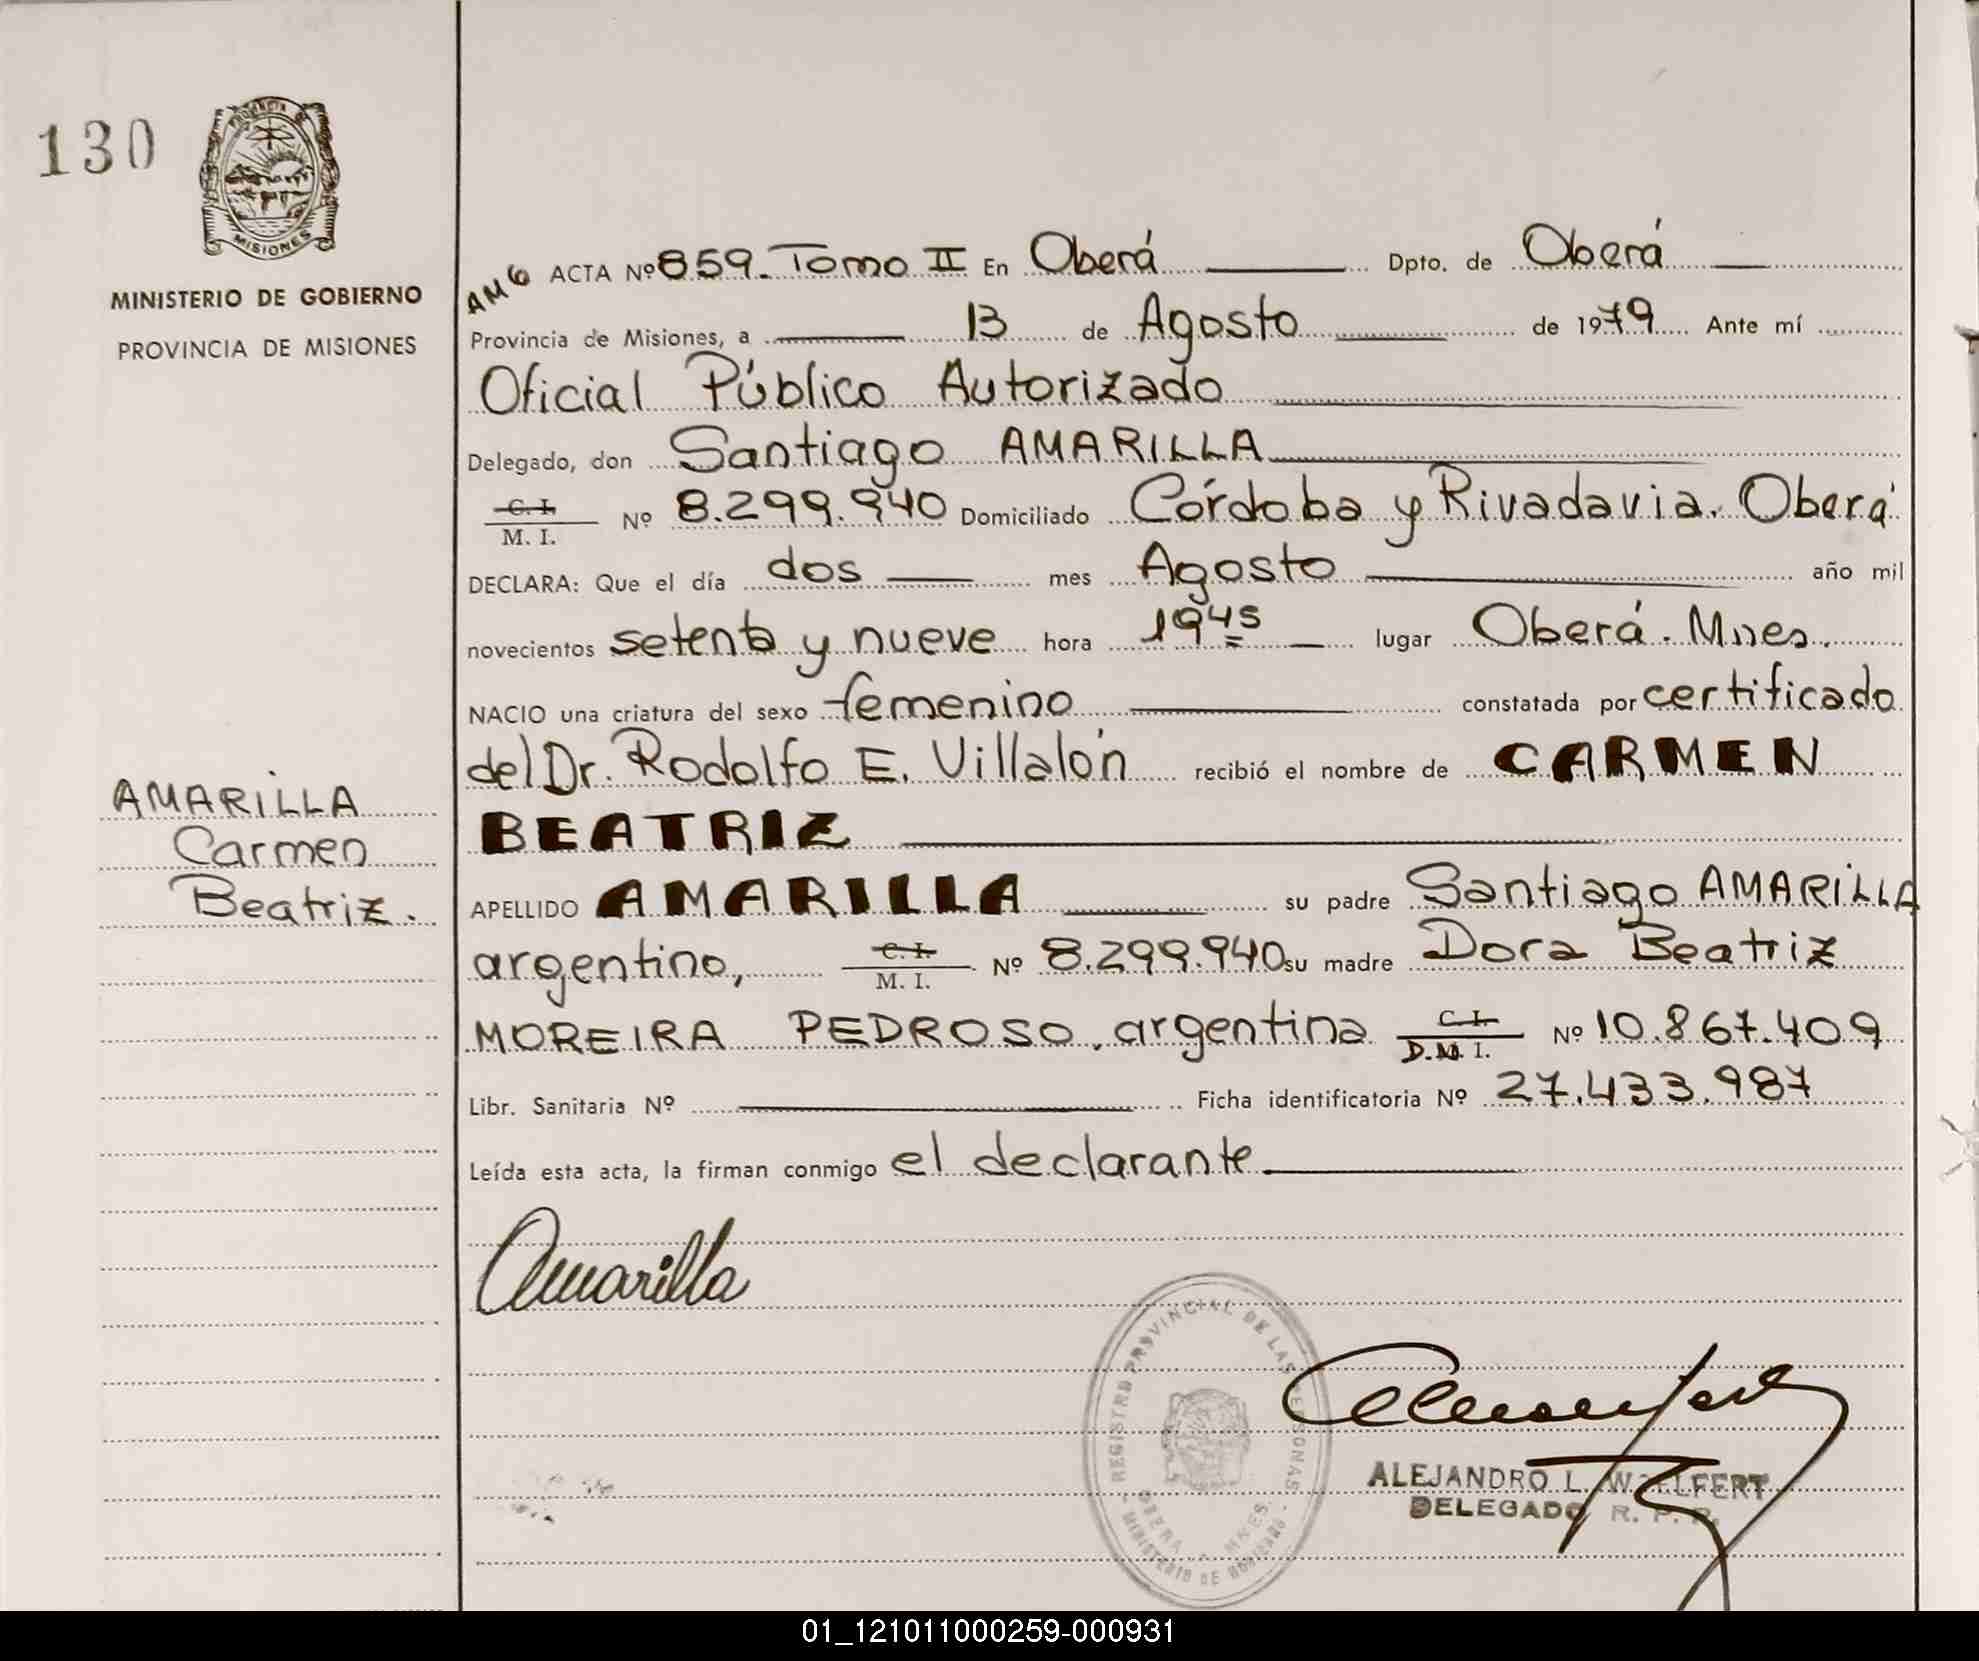 130
PROVINCIA DE
MISIONES
MINISTERIO DE GOBIERNO
PROVINCIA DE MISIONES
AMARILLA
Carmen
Beatriz.
AMG ACTA Nº 859. Tomo II En Oberá Dpto. de Oberá
Provincia de Misiones, a 13 de Agosto de 1979 Ante mí
Oficial Público Autorizado
Delegado, don Santiago AMARILLA
C. I.
M. I. Nº 8.299.940 Domiciliado Córdoba y Rivadavia. Oberá
DECLARA: Que el día dos mes Agosto año mil
novecientos setenta y nueve hora 1945 lugar Oberá. Mnes.
NACIO una criatura del sexo femenino constatada por certificado
del Dr. Rodolfo E. Villalón recibió el nombre de CARMEN
BEATRIZ
APELLIDO AMARILLA su padre Santiago AMARILLA
argentino, C. I.
M. I. Nº 8.299.940 su madre Dora Beatriz
MOREIRA PEDROSO, argentina C. I.
D.N. I. Nº 10.867.409
Libr. Sanitaria Nº Ficha identificatoria Nº 27.433.987
Leída esta acta, la firman conmigo el declarante
Amarilla
REGISTRO PROVINCIAL DE LAS PERSONAS
OBERA - MNES.
MINISTERIO DE GOBIERNO
ALEJANDRO L. WOELFERT
DELEGADO R. P. P.
01_121011000259-000931